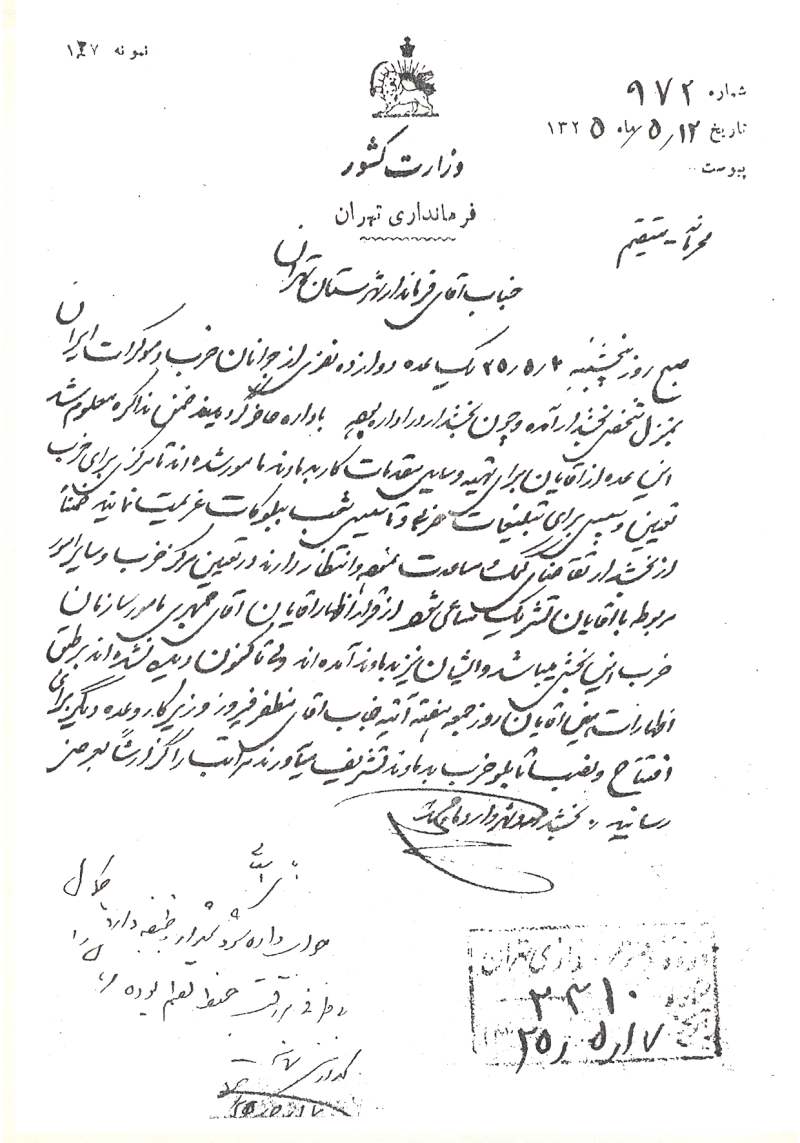 نمونه ۱۲۷
شماره ۹۷۲
تاریخ ۵/۱۲ ماه ۱۳۲۵
پیوست
وزارت کشور
فرمانداری تهران
محرمانه - مستقیم
جناب آقای فرماندار شهرستان تهران
صبح روز پنجشنبه ۲۵٫۵٫۳ یک عده دوازده نفری از جوانان حزب دموکرات ایران
بمنزل شخصی بخشدار آمده و چون بخشدار در اداره بوده باداره حاضر گردیدند ضمن مذاکره معلوم شد
این عده از آقایان برای تهیه وسایل مقدمات کار بدماوند مامور شده‌اند تا مرکزی برای حزب
تعیین و سپس برای تبلیغات حزبی و تأسیس شعب ببلوکات عزیمت نمایند ضمناً
از بخشدار تقاضای کمک و مساعدت نموده و انتظار دارند در تعیین مرکز حزب و سایر امور
مربوطه با آقایان تشریک مساعی شود از قرار اظهار آقایان آقای جمهری مامور سازمان
حزب این بخش میباشد و ایشان نیز بدماوند آمده‌اند ولی تا کنون دیده نشده‌اند بر طبق
اظهارات همین آقایان روز جمعه هفته آتیه جناب آقای مظفر فیروز وزیر کار و عده دیگر برای
افتتاح و نصب تابلو حزب بدماوند تشریف میآورند مراتب را گزارشاً بعرض
رسانید. بخشدار دماوند
جواب داده شود بخشدار وظیفه دارد
حفظ نظم بوده
تهران
۳۴۱۰
۲۵٫۵٫۱۷